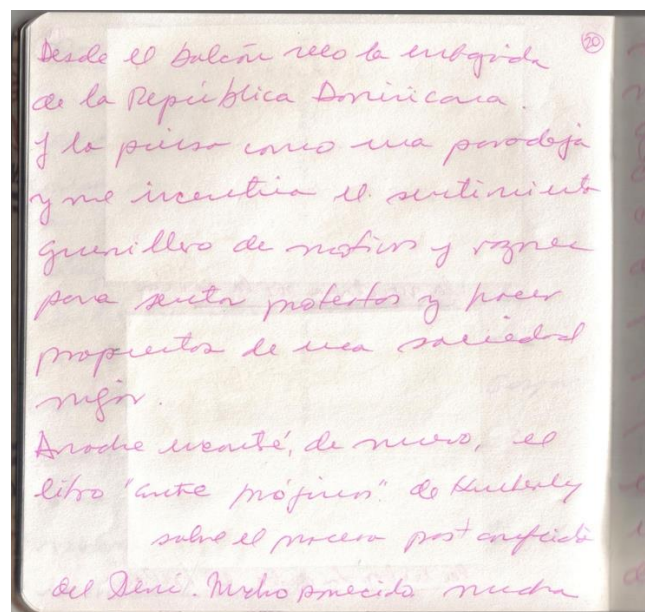 20
Desde el balcón veo la embajada
de la República Dominicana.
Y la pienso como una paradoja
y me incentiva el sentimiento
guerrillero de motivos y razones
para sentar protestas y hacer
propuestas de una sociedad
mejor.
Anoche encontré, de nuevo, el
libro "entre prójimos" de Kimberly
sobre el proceso post conflicto
del Perú. Mucho parecido mucha